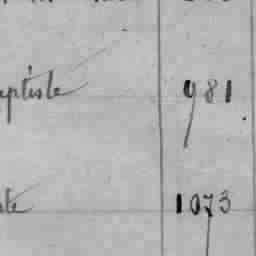 aptiste 981
te 1073